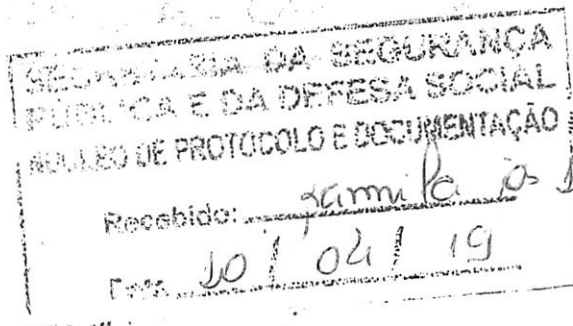 SECRETARIA DA SEGURANÇA
PÚBLICA E DA DEFESA SOCIAL
NÚCLEO DE PROTOCOLO E DOCUMENTAÇÃO
Recebido: às
Data / 04 / 19